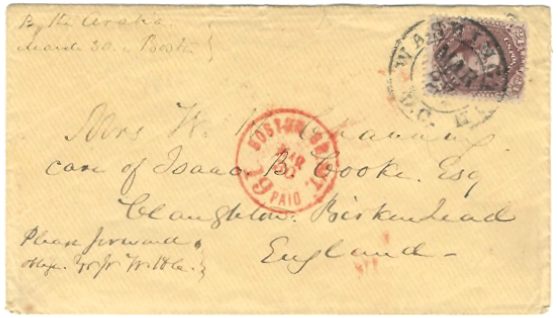 By the Arabia
March 30. Boston
WASHINGTON
MAR
D.C.
BOSTON BR. PKT.
MAR
30
19
PAID
Mrs W. H. Channing
care of Isaac B. Cooke. Esq
Claughton. Birkenhead
England
Please forward,
oblige